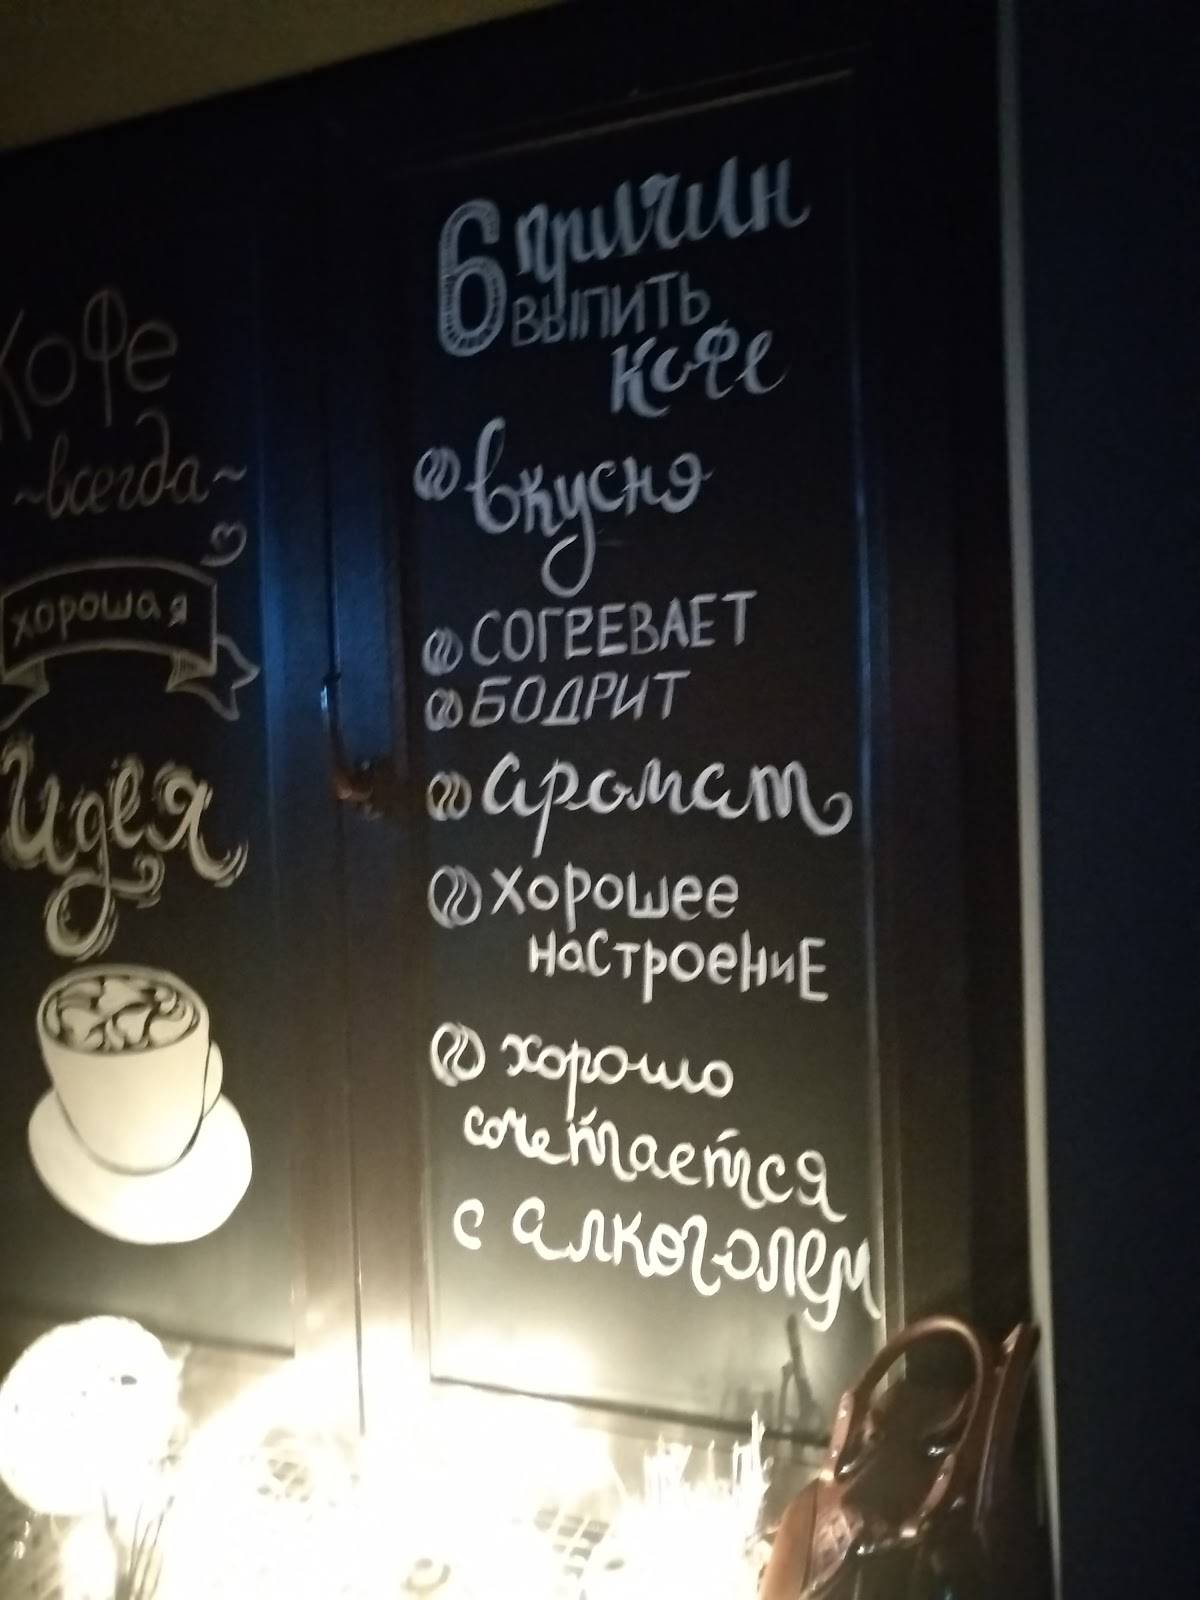 Кофе
~всегда~
хорошая
идея
6 причин
выпить
кофе
вкусня
СОГРЕВАЕТ
БОДРИТ
аромат
хорошее
настроение
хорошо
сочетается
с алкоголем